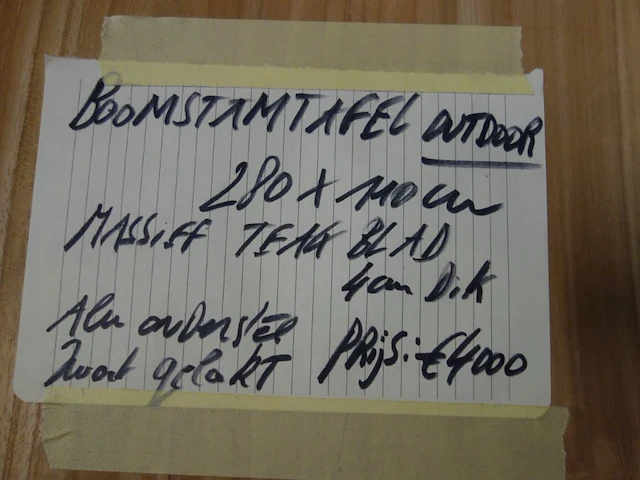 BOOMSTAMTAFEL OUTDOOR
280 X 110 cm
MASSIEF TEAK BLAD
4 cm Dik
Alu onderstel
Zwart gelakt
PRijs: €4000